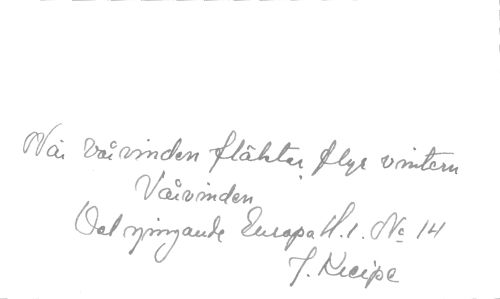 När vårvinden fläktar, flyr vintern
Vårvinden
Det sjungande Europa H. 1. No 14
J.